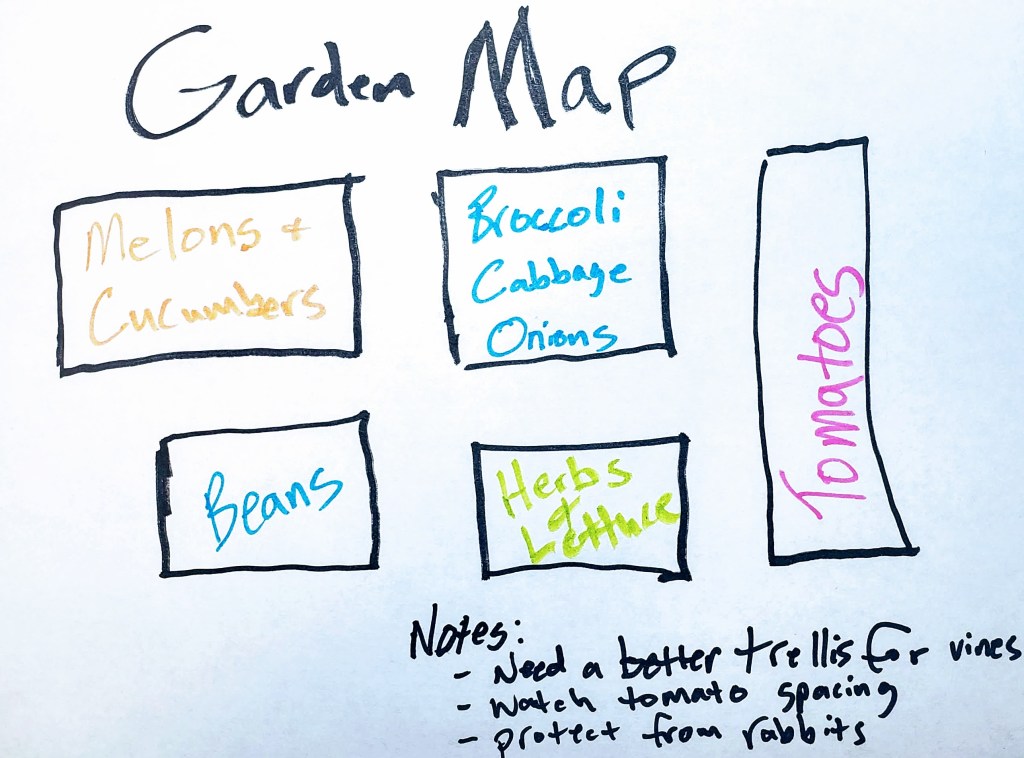 Garden Map
Melons +
Cucumbers
Broccoli
Cabbage
Onions
Tomatoes
Beans
Herbs
+
Lettuce
Notes:
- Need a better trellis for vines
- Watch tomato spacing
- protect from rabbits